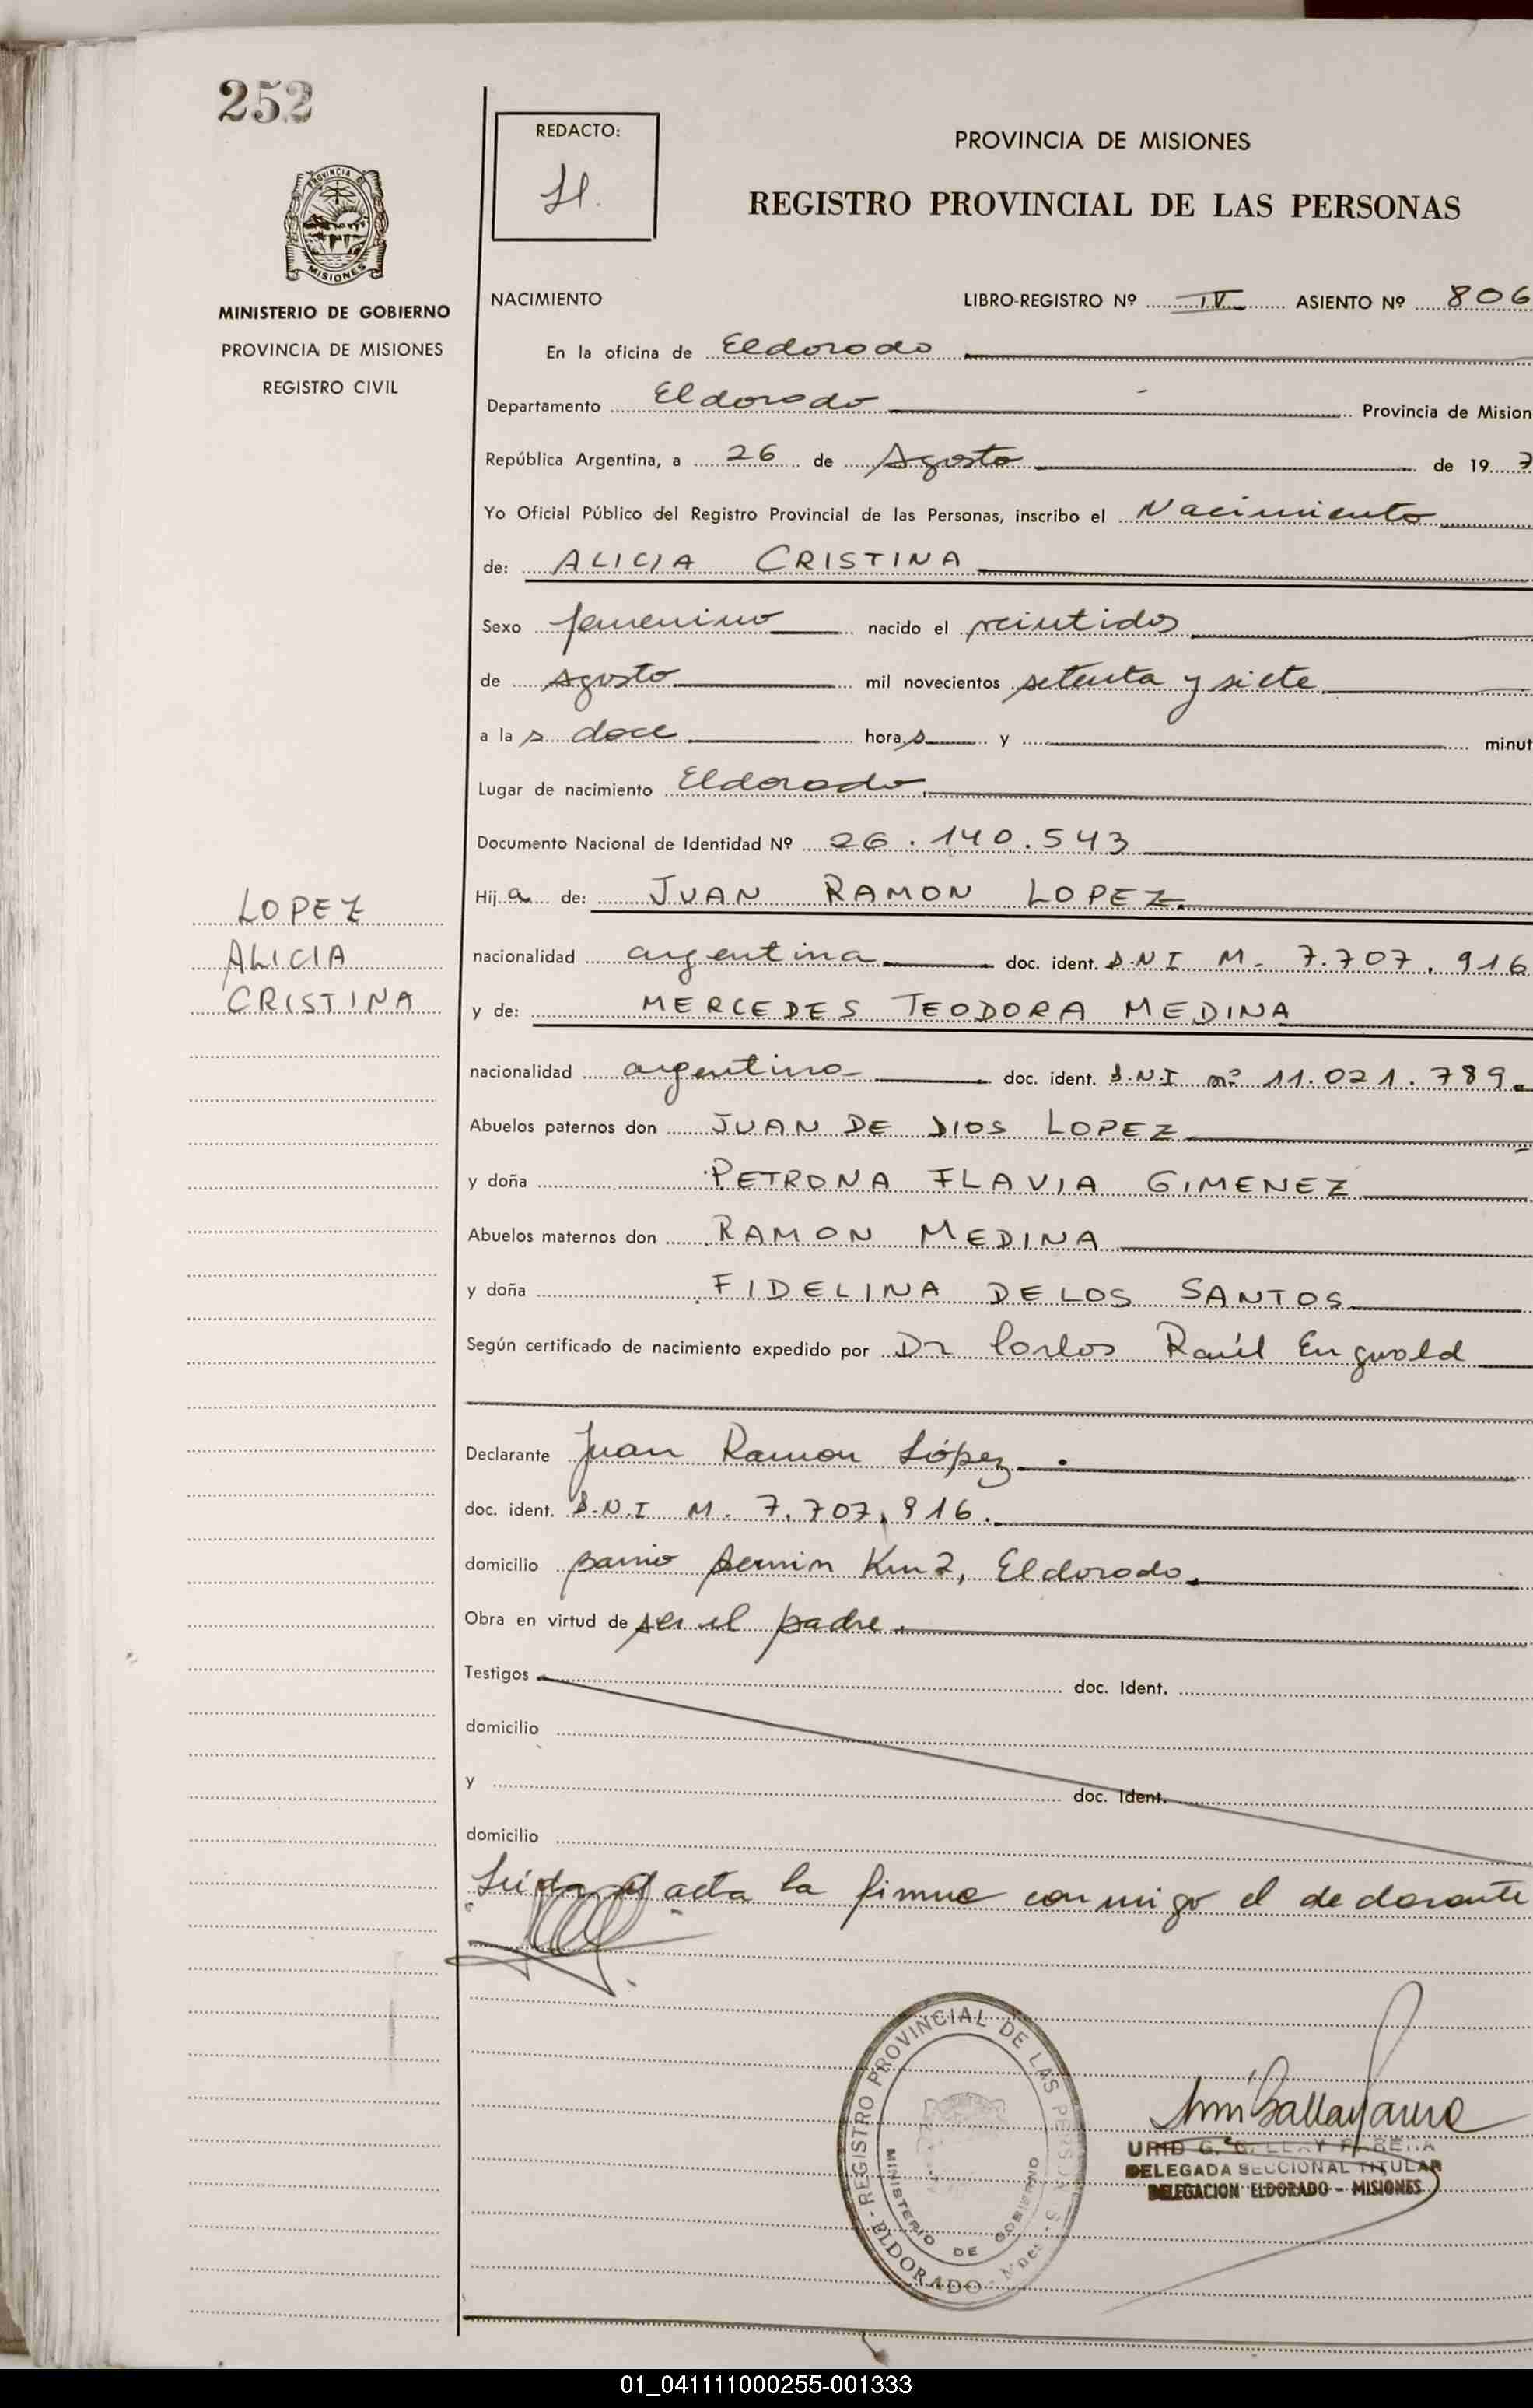 252
REDACTO:
PROVINCIA DE MISIONES
REGISTRO PROVINCIAL DE LAS PERSONAS
PROVINCIA DE
MISIONES
MINISTERIO DE GOBIERNO
PROVINCIA DE MISIONES
REGISTRO CIVIL
NACIMIENTO LIBRO-REGISTRO Nº IV ASIENTO Nº 806
En la oficina de Eldorado
Departamento Eldorado Provincia de Mision
República Argentina, a 26 de Agosto de 19 7
Yo Oficial Público del Registro Provincial de las Personas, inscribo el Nacimiento
de: ALICIA CRISTINA
Sexo femenino nacido el veintidos
de agosto mil novecientos setenta y siete
a la s doce hora s y minut
Lugar de nacimiento Eldorado.
Documento Nacional de Identidad Nº 26.140.543
LOPEZ
ALICIA
CRISTINA
Hij a de: JUAN RAMON LOPEZ
nacionalidad argentina doc. ident. D.N.I M. 7.707.916
y de: MERCEDES TEODORA MEDINA
nacionalidad argentina doc. ident. D.N.I nº 11.021.789
Abuelos paternos don JUAN DE DIOS LOPEZ
y doña PETRONA FLAVIA GIMENEZ
Abuelos maternos don RAMON MEDINA
y doña FIDELINA DE LOS SANTOS
Según certificado de nacimiento expedido por Dr Carlos Raúl Engwald
Declarante Juan Ramon López.
doc. ident. D.N.I M. 7.707.916.
domicilio barrio Km 2, Eldorado.
Obra en virtud de ser el padre.
Testigos doc. Ident.
domicilio
y doc. Ident.
domicilio
Leida el acta la firma conmigo el declarante
REGISTRO PROVINCIAL DE LAS PERSONAS - ELDORADO - Mnes.
MINISTERIO DE GOBIERNO
DELEGADA SECCIONAL TITULAR
DELEGACION ELDORADO - MISIONES
01_041111000255-001333